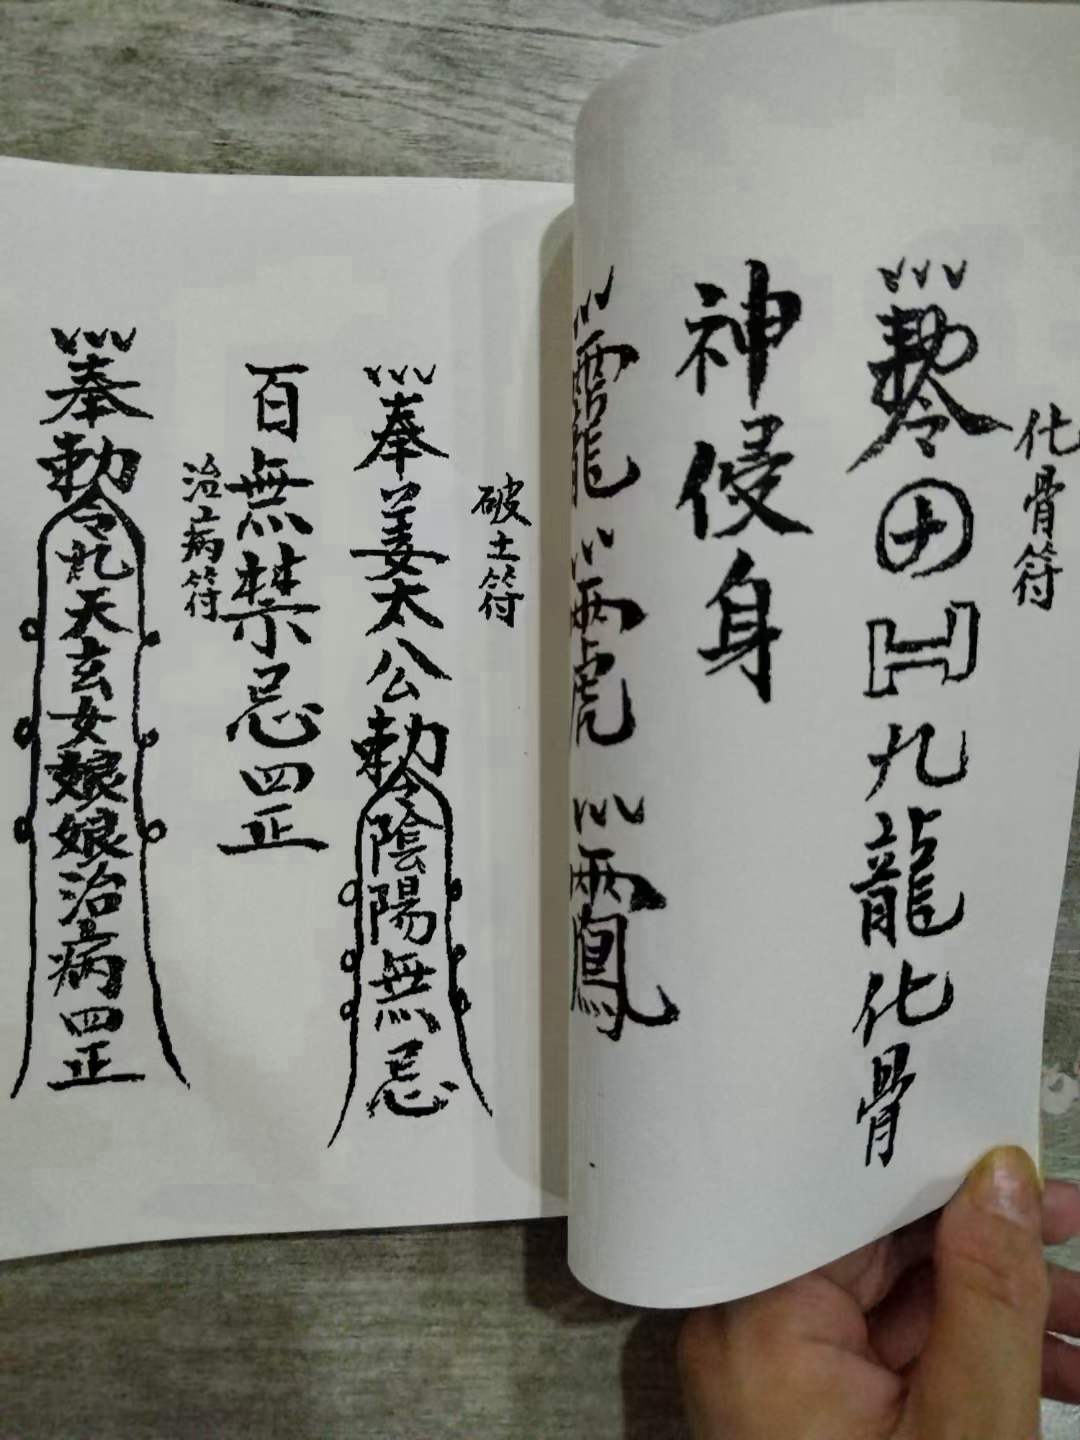 化骨符
勅令
九龍化骨
神侵身
破土符
奉姜太公勅令陰陽無忌
百無禁忌四正
治病符
奉勅令九天玄女娘娘治病四正